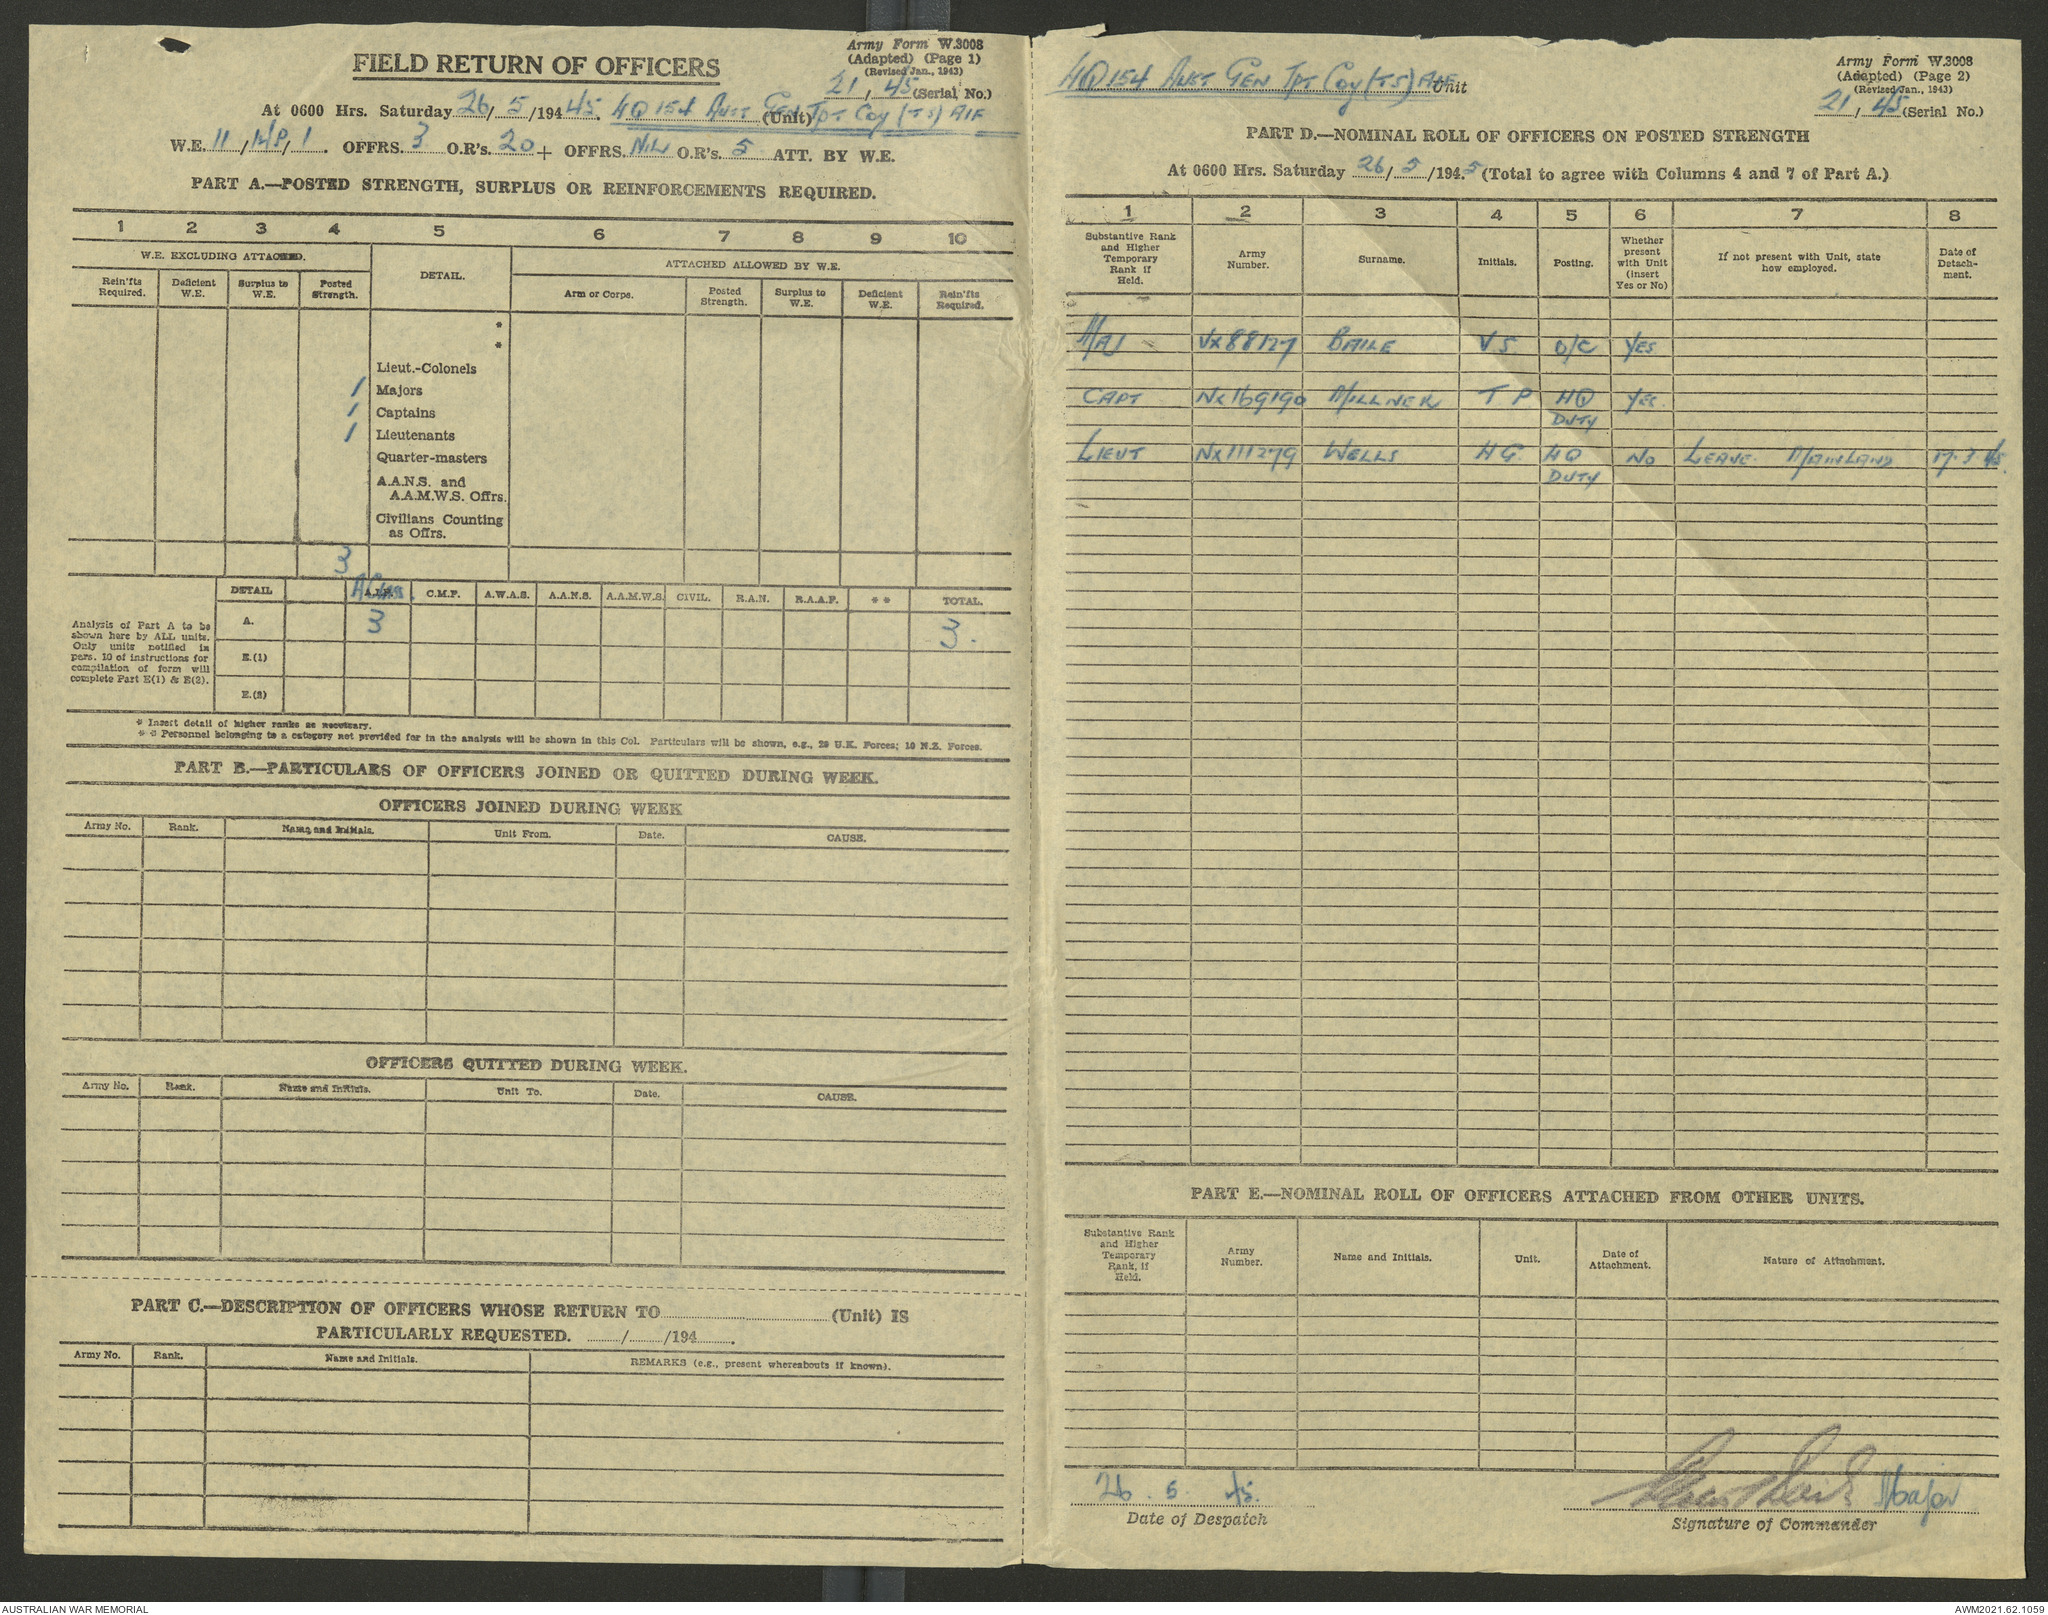 Army Form W.3008
(Adapted) (Page 1)
(Revised Jan., 1943)
FIELD RETURN OF OFFICERS
21 / 45 (Serial No.)
At 0600 Hrs. Saturday 26/ 5 /194 45. HQ 154 Aust Gen Tpt Coy (TS) AIF (Unit)
W.E. 11 / / 1 . OFFRS. 3 O.R's. 20 + OFFRS. NIL O.R's. 5 ATT. BY W.E.
PART A.—POSTED STRENGTH, SURPLUS OR REINFORCEMENTS REQUIRED.
1 2 3 4 5 6 7 8 9 10
W.E. EXCLUDING ATTACHED. DETAIL. ATTACHED ALLOWED BY W.E.
Rein'fts Required. Deficient W.E. Surplus to W.E. Posted Strength. Arm or Corps. Posted Strength. Surplus to W.E. Deficient W.E. Rein'fts Required.
*
*
Lieut.-Colonels
1 Majors
1 Captains
1 Lieutenants
Quarter-masters
A.A.N.S. and
A.A.M.W.S. Offrs.
Civilians Counting
as Offrs.
3
DETAIL A.I.F. C.M.F. A.W.A.S. A.A.N.S. A.A.M.W.S. CIVIL. R.A.N. R.A.A.F. * * TOTAL.
Analysis of Part A to be
shown here by ALL units.
Only units notified in
para. 10 of instructions for
compilation of form will
complete Part E(1) & E(2).
A. 3 3.
E.(1)
E.(2)
* Insert detail of higher ranks as necessary.
* * Personnel belonging to a category not provided for in the analysis will be shown in this Col. Particulars will be shown, e.g., 29 U.K. Forces; 10 N.Z. Forces.
PART B.—PARTICULARS OF OFFICERS JOINED OR QUITTED DURING WEEK.
OFFICERS JOINED DURING WEEK
Army No. Rank. Name and Initials. Unit From. Date. CAUSE.
OFFICERS QUITTED DURING WEEK.
Army No. Rank. Name and Initials. Unit To. Date. CAUSE.
PART C.—DESCRIPTION OF OFFICERS WHOSE RETURN TO (Unit) IS
PARTICULARLY REQUESTED. / /194 .
Army No. Rank. Name and Initials. REMARKS (e.g., present whereabouts if known).
HQ 154 Aust Gen Tpt Coy (TS) AIF Unit
Army Form W.3008
(Adapted) (Page 2)
(Revised Jan., 1943)
21 / 45 (Serial No.)
PART D.—NOMINAL ROLL OF OFFICERS ON POSTED STRENGTH
At 0600 Hrs. Saturday 26/ 5 /194.5 (Total to agree with Columns 4 and 7 of Part A.)
1 2 3 4 5 6 7 8
Substantive Rank and Higher Temporary Rank if Held. Army Number. Surname. Initials. Posting. Whether present with Unit (insert Yes or No) If not present with Unit, state how employed. Date of Detach-ment.
MAJ VX88127 BAILE V S O/C YES
CAPT NX169190 MILLNER T P HQ YES
DUTY
LIEUT NX111279 WELLS H G. HQ NO LEAVE MAINLAND 17.3.45.
DUTY
PART E.—NOMINAL ROLL OF OFFICERS ATTACHED FROM OTHER UNITS.
Substantive Rank and Higher Temporary Rank, if Held. Army Number. Name and Initials. Unit. Date of Attachment. Nature of Attachment.
26 . 5 . 45. Major
Date of Despatch Signature of Commander
AUSTRALIAN WAR MEMORIAL AWM2021.62.1059